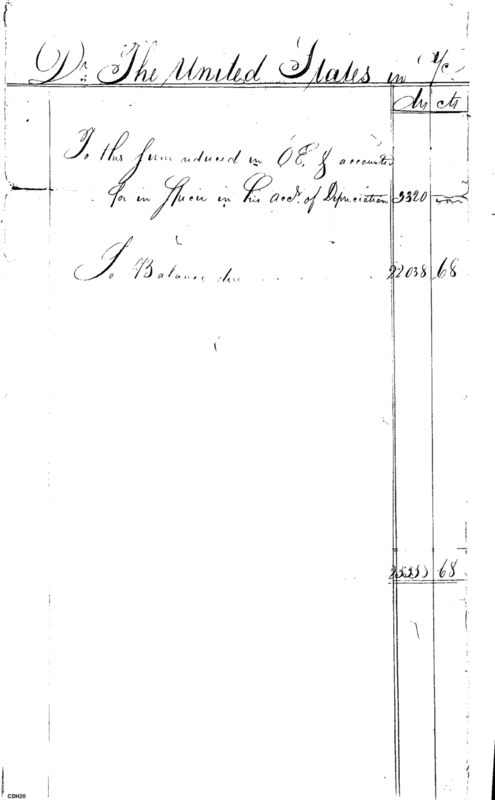 Dr The United States in a/c
drs cts
To this sum reduced in OE. & accounted
for in Specie in his acct. of Depreciation 3320
To Balance due . . . . 22038 68
68
CDH20